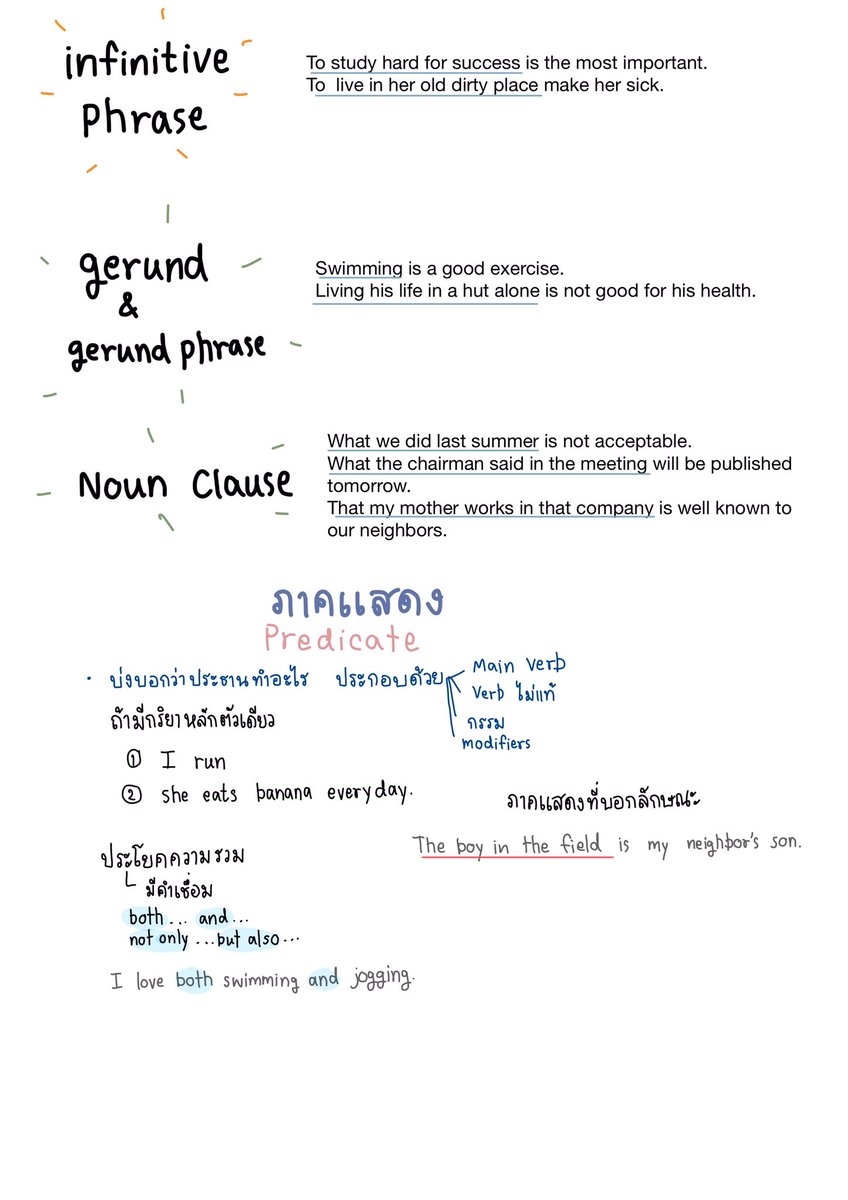 infinitive
phrase
To study hard for success is the most important.
To live in her old dirty place make her sick.
gerund
&
gerund phrase
Swimming is a good exercise.
Living his life in a hut alone is not good for his health.
Noun Clause
What we did last summer is not acceptable.
What the chairman said in the meeting will be published
tomorrow.
That my mother works in that company is well known to
our neighbors.
ภาคแสดง
Predicate
• บ่งบอกว่าประธานทำอะไร ประกอบด้วย
Main Verb
Verb ไม่แท้
กรรม
modifiers
ถ้ามีกริยาหลักตัวเดียว
① I run
② she eats banana everyday.
ภาคแสดงที่บอกลักษณะ
The boy in the field is my neighbor's son.
ประโยคความรวม
มีคำเชื่อม
both... and...
not only ...but also...
I love both swimming and jogging.